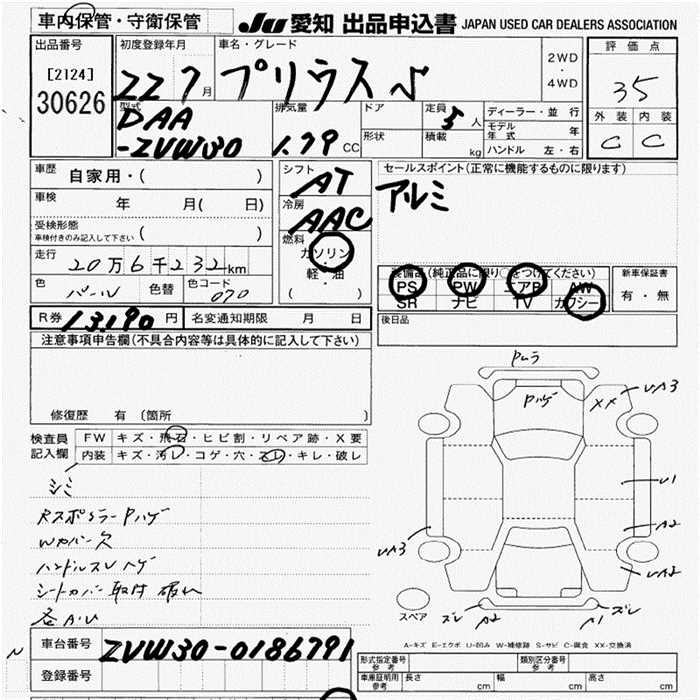 車内保管・守衛保管
JU 愛知 出品申込書 JAPAN USED CAR DEALERS ASSOCIATION
出品番号 初度登録年月 車名・グレード 2WD ・ 4WD 評価点
[2124] 30626 22 7月 プリウス S 35
型式 DAA -ZVW30 排気量 1.79 CC ドア 形状 定員 5人 積載 kg
ディーラー・並行
モデル年式 年
ハンドル 左・右
外装 内装
C C
車歴 自家用・( )
車検 年 月( 日)
受検形態 車検付きのみ記入して下さい ( )
走行 20万6千232km
色 パール 色替 色コード 070
シフト AT
冷房 AAC
燃料 ガソリン・軽・油 ( )
セールスポイント(正常に機能するものに限ります)
アルミ
装備品(純正品に限り○をつけてください)
PS PW エアB AW
SR ナビ TV カワシー
新車保証書
有・無
後日品
R券 13,190円 名変通知期限 月 日
注意事項申告欄(不具合内容等は具体的に記入して下さい)
修復歴 有 (箇所 )
検査員記入欄
FW キズ・飛石・ヒビ割・リペア跡・X要
内装 キズ・汚レ・コゲ・穴・スレ・キレ・破レ
シミ
RスポイラーPハゲ
Wカバー欠
ハンドルスレ ハゲ
シートカバー取付 破れ
各AU
Pムラ
Pハゲ
XX
UA3
U1
A2
UA2
UA3
スペア
ズレ A2 A1 ズレ
A-キズ E-エクボ U-凹み W-補修跡 S-サビ C-腐食 XX-交換済
車台番号 ZVW30-0186791
登録番号
形式指定番号 参考 類別区分番号 参考
車庫証明用 参考 長さ cm 幅 cm 高さ cm